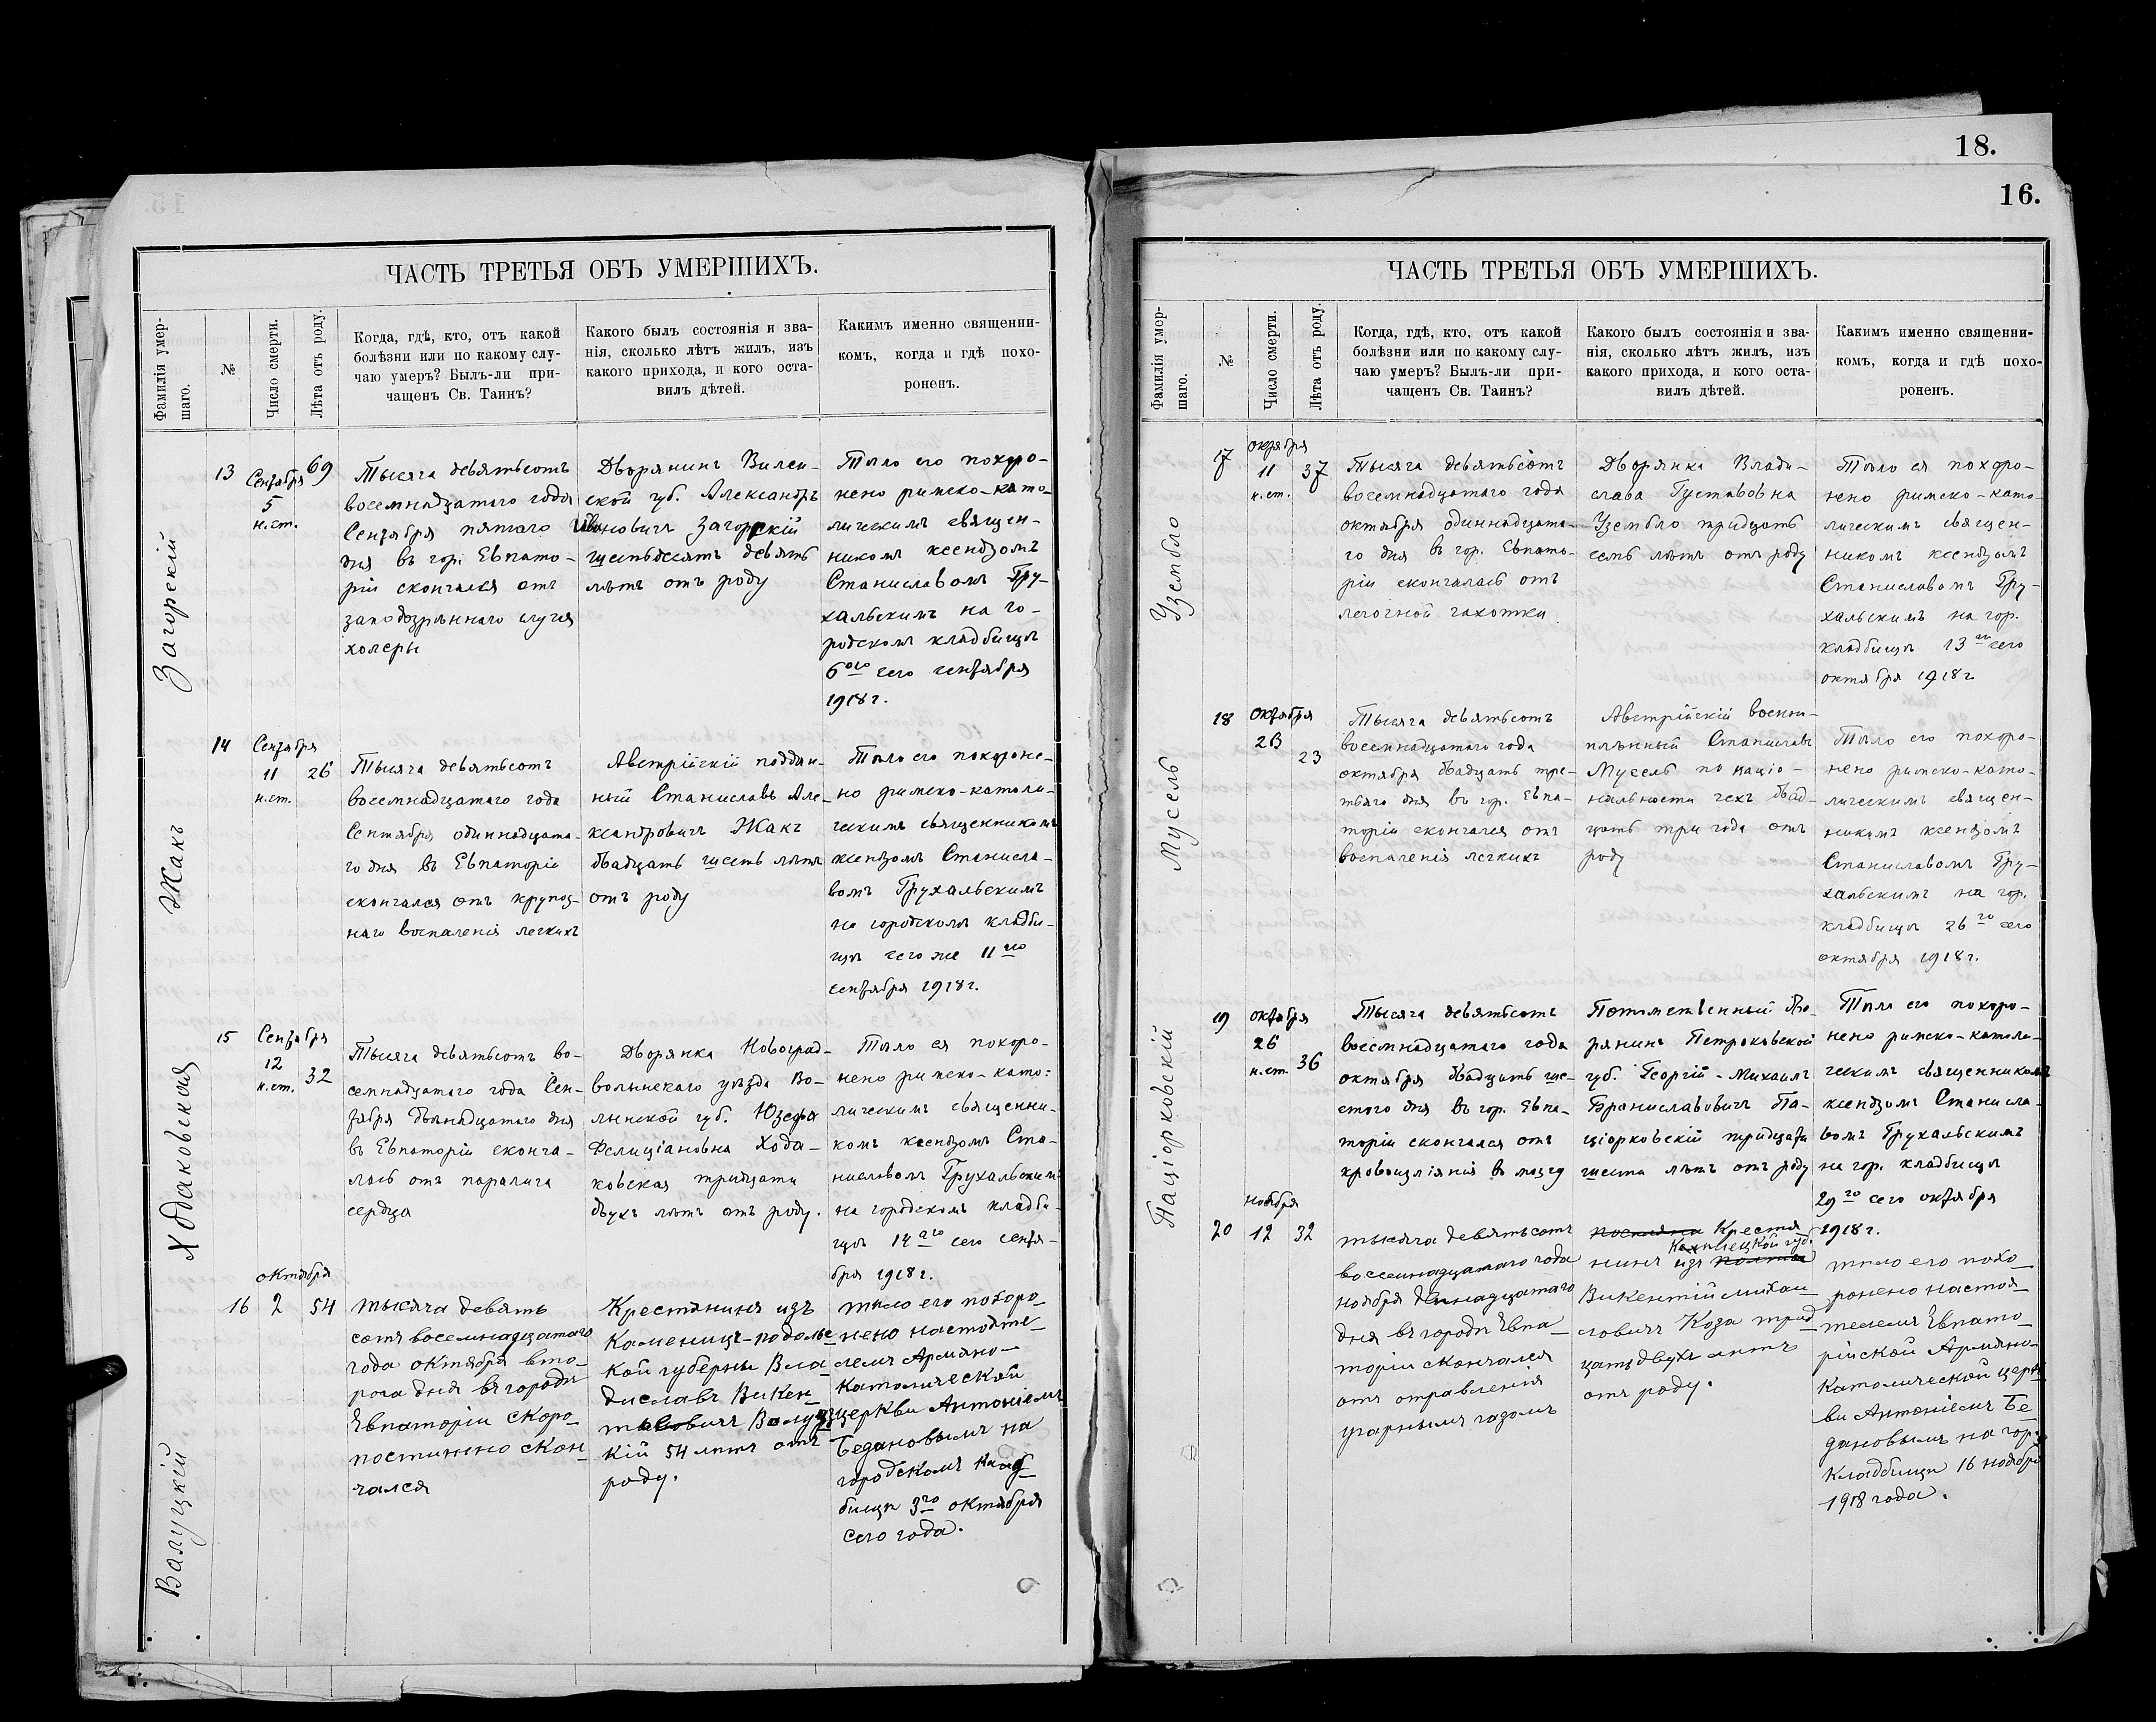 18.
16.
ЧАСТЬ ТРЕТЬЯ ОБЪ УМЕРШИХЪ.
Фамилія умер-
шаго.
№
Число смерти.
Лѣта отъ роду.
Когда, гдѣ, кто, отъ какой
болѣзни или по какому слу-
чаю умеръ? Былъ-ли при-
чащенъ Св. Таинъ?
Какого былъ состоянія и зва-
нія, сколько лѣтъ жилъ, изъ
какого прихода, и кого оста-
вилъ дѣтей.
Какимъ именно священни-
комъ, когда и гдѣ похо-
роненъ.
Загорскій
13
Сентября
5
н.ст.
69
Тысяча девятьсотъ
восемнадцатаго года
Сентября пятаго
дня въ гор. Евпато-
ріи скончался отъ
заподозрѣннаго случая
холеры
Дворянинъ Вилен-
ской губ. Александръ
Ивановичъ Загорскій
шестьдесятъ девять
лѣтъ отъ роду
Тѣло его похоро-
нено римско-като-
лическимъ священ-
никомъ ксендзомъ
Станиславомъ Гру-
хальскимъ на го-
родскомъ кладбищѣ
6ого сего сентября
1918 г.
Жакъ
14
Сентября
11
н.ст.
26
Тысяча девятьсотъ
восемнадцатаго года
Сентября одиннадцата-
го дня въ Евпаторіи
скончался отъ крупоз-
наго воспаленія легкихъ
Австрійскій поддан-
ный Станиславъ Але-
ксандровичъ Жакъ
двадцать шесть лѣтъ
отъ роду
Тѣло его похороне-
но римско-католи-
ческимъ священникомъ
ксендзомъ Станисла-
вомъ Грухальскимъ
на городскомъ кладби-
щѣ сего же 11аго
сентября 1918 г.
Ходаковская
15
Сентября
12
н.ст.
32
Тысяча девятьсотъ во-
семнадцатаго года Сен-
тября двѣнадцатаго дня
въ Евпаторіи сконча-
лась отъ паралича
сердца
Дворянка Новоград-
волынскаго уѣзда Во-
лынской губ. Юзефа
Фелиціановна Хода-
ковская тридцати
двухъ лѣтъ отъ роду.
Тѣло ея похоро-
нено римско-като-
лическимъ священни-
комъ ксендзомъ Ста-
ниславомъ Грухальскимъ
на городскомъ кладби-
щѣ 14аго сего сентя-
бря 1918 г.
Валуцкій
октября
16
2
54
тысяча девять
сотъ восемнадцатаго
года октября вто-
рога дня въ городѣ
Евпаторіи скоро-
постижно скон
чался
Крестянинъ изъ
Каменицъ-подольс
кой губерни Вла
диславъ Викен-
тьевичъ Валуц
кій 54 лѣтъ отъ
роду.
тѣло его похоро-
нено настояте-
лемъ Армяно-
Католической
церкви Антоніемъ
Бедановымъ на
городскомъ клад
бищѣ 3го октября
сего года.
ЧАСТЬ ТРЕТЬЯ ОБЪ УМЕРШИХЪ.
Фамилія умер-
шаго.
№
Число смерти.
Лѣта отъ роду.
Когда, гдѣ, кто, отъ какой
болѣзни или по какому слу-
чаю умеръ? Былъ-ли при-
чащенъ Св. Таинъ?
Какого былъ состоянія и зва-
нія, сколько лѣтъ жилъ, изъ
какого прихода, и кого оста-
вилъ дѣтей.
Какимъ именно священни-
комъ, когда и гдѣ похо-
роненъ.
Узембло
17
октября
11
н.ст.
37
Тысяча девятьсотъ
восемнадцатаго года
октября одиннадцата-
го дня въ гор. Евпато-
ріи скончалась отъ
легочной чахотки
Дворянка Влади-
слава Густавовна
Узембло тридцать
семь лѣтъ отъ роду
Тѣло ея похоро-
нено римско-като-
лическимъ священ-
никомъ ксендзомъ
Станиславомъ Гру-
хальскимъ на гор.
кладбищѣ 13аго сего
октября 1918 г
Мусель
18
октября
23
23
Тысяча девятьсотъ
восемнадцатаго года
октября двадцать тре-
тьяго дня въ гор. Евпа-
торіи скончался отъ
воспаленія легкихъ
Австрійскій военно-
плѣнный Станиславъ
Мусель по націо-
нальности чехъ двад-
цать три года отъ
роду
Тѣло его похоро-
нено римско-като-
лическимъ священ-
никомъ ксендзомъ
Станиславомъ Гру-
хальскимъ на гор.
кладбищѣ 26го сего
октября 1918 г.
Паціорковскій
19
октября
26
н.ст.
36
Тысяча девятьсотъ
восемнадцатаго года
октября двадцать ше-
стого дня въ гор. Евпа-
торіи скончался отъ
кровоизліянія в мозгу
Потомственный дво-
рянинъ Петроковской
губ. Георгій-Михаилъ
Браниславовичъ Па-
ціорковскій тридцати
шести лѣтъ отъ роду
Тѣло его похоро-
нено римско-католи-
ческимъ священникомъ
ксендзомъ Станисла-
вомъ Грухальскимъ
на гор. кладбищѣ
29го сего октября
1918 г.
ноября
20
12
32
тысяча девятьсотъ
восемнадцатаго года
ноября двенадцатаго
дня въ городѣ Евпа-
торіи скончался
отъ отравления
угарнымъ газомъ
Крестя
нинъ изъ
Келецкой губ.
Викентій Михаи
ловичъ Коза трид
цать двухъ лѣтъ
отъ роду.
тѣло его похо-
ронено настоя-
телемъ Евпато-
рійской Армяно-
Католической церк
ви Антоніемъ Бе
дановымъ на гор.
Кладбищѣ 16 ноября
1918 года.